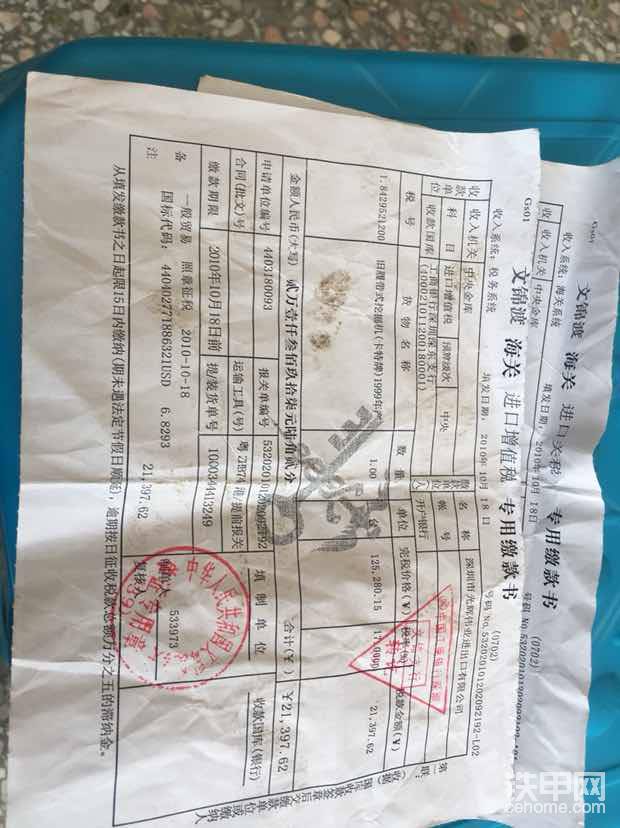 Gs01
文锦渡 海关 进口关税 专用缴款书
收入系统：海关系统
填发日期：2010年10月18日
(0702)
收入机关 中央金库
Gs01
文锦渡 海关 进口增值税 专用缴款书
(0702)
收入系统：税务系统
填发日期：2010年10月18日
号码No.532020101202092192-L02
收款单位
收入机关 中央金库
科目 进口增值税 预算级次 中央
收款国库 工商银行深圳深东支行
名称 深圳市光辉伟业进出口有限公司
帐号
开户银行
税号 货物名称 数量 单位 完税价格(¥) 税款金额(¥)
1.8429521200 旧履带式挖掘机(卡特牌)1999年产 1.00 台 125,280.15 21,397.62
金额人民币(大写) 贰万壹仟叁佰玖拾柒元陆角贰分 合计(¥) ¥21,397.62
申请单位编号 4403180093 报关单编号
填制单位 收款国库(银行)
合同(批文)号 运输工具(号)
缴款期限 2010年10月18日前 提/装货单号 100034413249
备注
一般贸易 照章征税 2010-10-18
国标代码：440402771886321USD 6.8293
21,397.62
制单人 533973
复核人
从填发缴款书之日起限15日内缴纳(期末遇法定节假日顺延)，逾期按日征收税款总额万分之五的滞纳金。
铁甲网
cehome.com